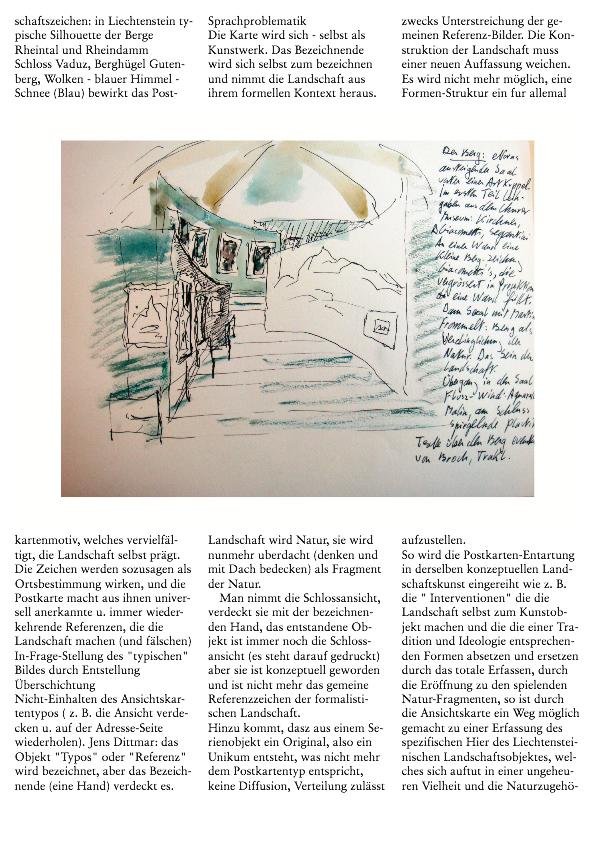 schaftszeichen: in Liechtenstein ty-
pische Silhouette der Berge
Rheintal und Rheindamm
Schloss Vaduz, Berghügel Guten-
berg, Wolken - blauer Himmel -
Schnee (Blau) bewirkt das Post-
kartenmotiv, welches vervielfäl-
tigt, die Landschaft selbst prägt.
Die Zeichen werden sozusagen als
Ortsbestimmung wirken, und die
Postkarte macht aus ihnen univer-
sell anerkannte u. immer wieder-
kehrende Referenzen, die die
Landschaft machen (und fälschen)
In-Frage-Stellung des "typischen"
Bildes durch Entstellung
Überschichtung
Nicht-Einhalten des Ansichtskar-
tentypos ( z. B. die Ansicht verde-
cken u. auf der Adresse-Seite
wiederholen). Jens Dittmar: das
Objekt "Typos" oder "Referenz"
wird bezeichnet, aber das Bezeich-
nende (eine Hand) verdeckt es.
Sprachproblematik
Die Karte wird sich - selbst als
Kunstwerk. Das Bezeichnende
wird sich selbst zum bezeichnen
und nimmt die Landschaft aus
ihrem formellen Kontext heraus.
Landschaft wird Natur, sie wird
nunmehr uberdacht (denken und
mit Dach bedecken) als Fragment
der Natur.
Man nimmt die Schlossansicht,
verdeckt sie mit der bezeichnen-
den Hand, das entstandene Ob-
jekt ist immer noch die Schloss-
ansicht (es steht darauf gedruckt)
aber sie ist konzeptuell geworden
und ist nicht mehr das gemeine
Referenzzeichen der formalisti-
schen Landschaft.
Hinzu kommt, dasz aus einem Se-
rienobjekt ein Original, also ein
Unikum entsteht, was nicht mehr
dem Postkartentyp entspricht,
keine Diffusion, Verteilung zulässt
zwecks Unterstreichung der ge-
meinen Referenz-Bilder. Die Kon-
struktion der Landschaft muss
einer neuen Auffassung weichen.
Es wird nicht mehr möglich, eine
Formen-Struktur ein fur allemal
aufzustellen.
So wird die Postkarten-Entartung
in derselben konzeptuellen Land-
schaftskunst eingereiht wie z. B.
die " Interventionen" die die
Landschaft selbst zum Kunstob-
jekt machen und die die einer Tra-
dition und Ideologie entsprechen-
den Formen absetzen und ersetzen
durch das totale Erfassen, durch
die Eröffnung zu den spielenden
Natur-Fragmenten, so ist durch
die Ansichtskarte ein Weg möglich
gemacht zu einer Erfassung des
spezifischen Hier des Liechtenstei-
nischen Landschaftsobjektes, wel-
ches sich auftut in einer ungeheu-
ren Vielheit und die Naturzugehö-
Der Berg: 
ansteigende Saal
unter einer Art Kuppel.
Im ersten Teil
gaben aus dem Churer
Museum: Kirchner,
Giacometti, Segantini
An einer Wand eine
kleine Berg-Zeichnung
Giacometti's, die
vergrössert in Projektion
eine Wand füllt.
Dann Saal mit Martin
Frommelt: Berg als
Verdinglichung der
Natur. Das Sein der
Landschaft.
Übergang in den Saal
Fluss-Wind-
Malin, am Schluss
spiegelnde
Texte über den Berg
von Broch, Trakl.